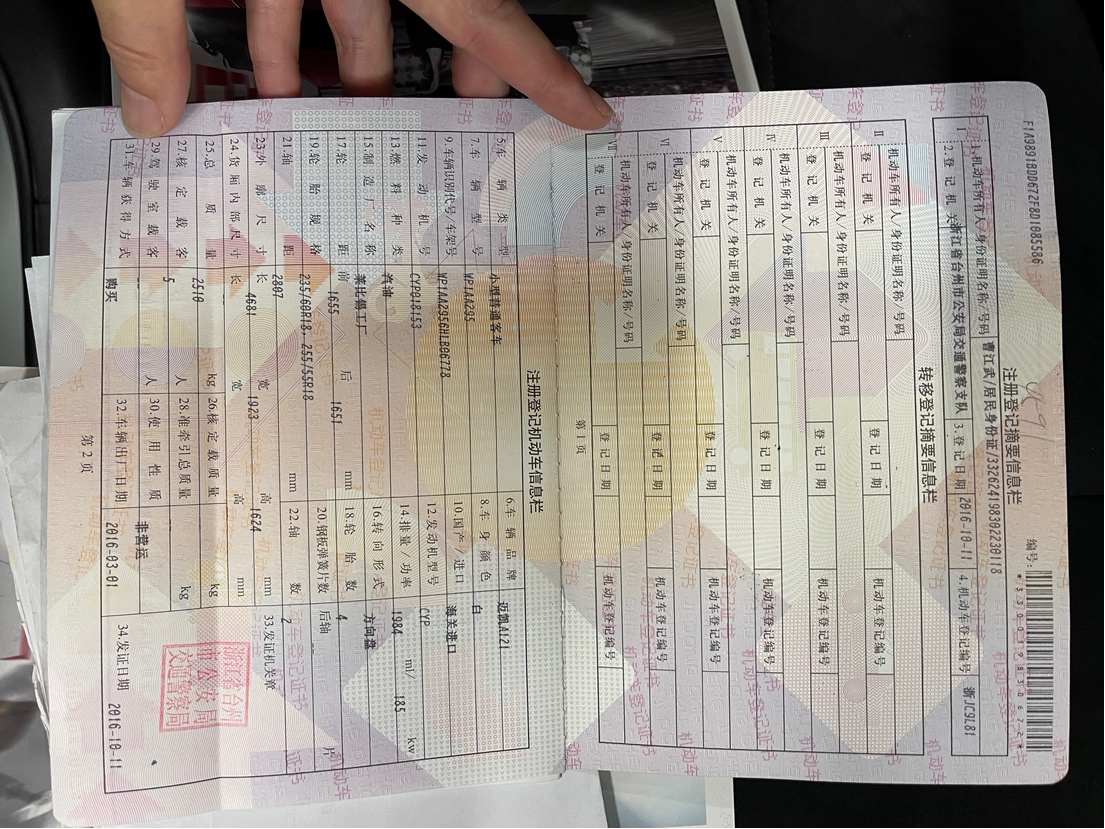 F1A9891BDD672F8D1085586
编号:
*330019830672*
注册登记摘要信息栏
Ⅰ 1.机动车所有人/身份证明名称/号码 曹江武/居民身份证/332624198302230118
2.登记机关 浙江省台州市公安局交通警察支队 3.登记日期 2016-10-11 4.机动车登记编号 浙JC9L81
转移登记摘要信息栏
Ⅱ 机动车所有人/身份证明名称/号码
登记机关 登记日期 机动车登记编号
Ⅲ 机动车所有人/身份证明名称/号码
登记机关 登记日期 机动车登记编号
Ⅳ 机动车所有人/身份证明名称/号码
登记机关 登记日期 机动车登记编号
Ⅴ 机动车所有人/身份证明名称/号码
登记机关 登记日期 机动车登记编号
Ⅵ 机动车所有人/身份证明名称/号码
登记机关 登记日期 机动车登记编号
Ⅶ 机动车所有人/身份证明名称/号码
登记机关 登记日期 机动车登记编号
第1页
注册登记机动车信息栏
5.车辆类型 小型普通客车 6.车辆品牌 迈凯A121
7.车辆型号 WP1AA295 8.车身颜色 白
9.车辆识别代号/车架号 WP1AA2956HLB06778 10.国产/进口 海关进口
11.发动机号 CYP018153 12.发动机型号 CYP
13.燃料种类 汽油 14.排量/功率 1984 ml/ 185 kw
15.制造厂名称 莱比锡工厂 16.转向形式 方向盘
17.轮距 前 1655 后 1651 mm 18.轮胎数 4
19.轮胎规格 235/60R18, 255/55R18 20.钢板弹簧片数 后轴 -- 片
21.轴距 2807 mm 22.轴数 2
23.外廓尺寸 长 4681 宽 1923 高 1624 mm 33.发证机关章
24.货厢内部尺寸 长 宽 高 mm
25.总质量 2510 kg 26.核定载质量 kg
27.核定载客 5 人 28.准牵引总质量 kg
29.驾驶室载客 -- 人 30.使用性质 非营运
31.车辆获得方式 购买 32.车辆出厂日期 2016-03-01 34.发证日期 2016-10-11
浙江省台州
市公安局
交通警察局
第2页